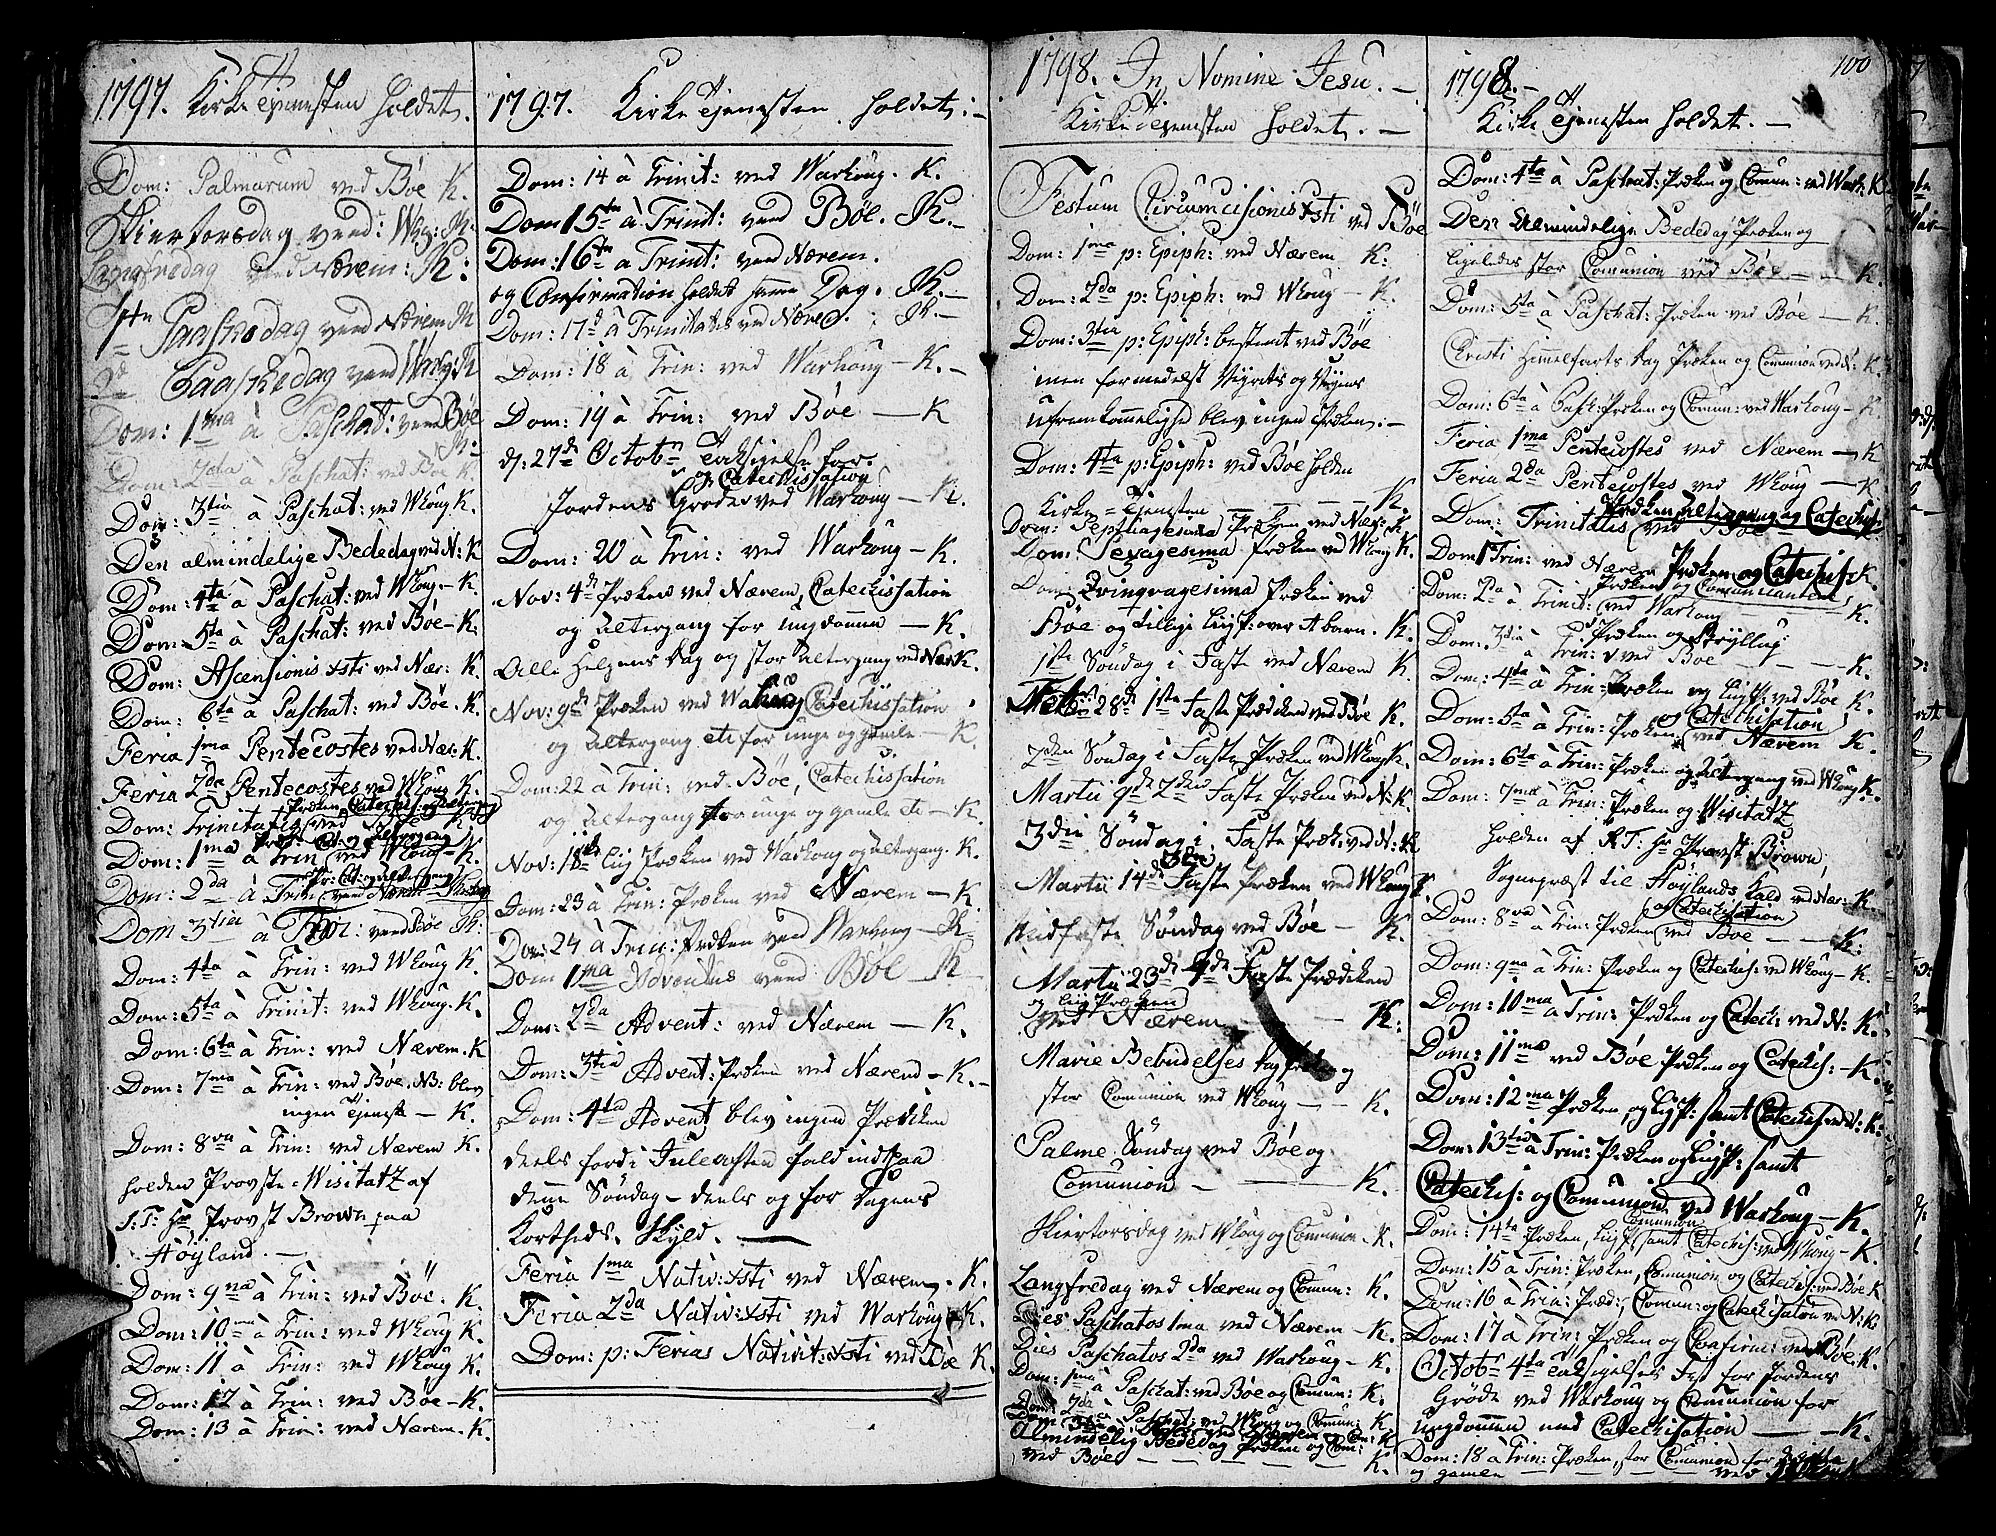 1797. Kirke Tjenesten holdet.
Dom: Palmarum ved Bøe K.
Skiertorsdag ved: Whg: K.
Langfredag ved Nærem: K:
1ste Paaskedag ved Nærem K
2d Paaskedag ved Warhg: K
Dom: 1ma à Paschat: ved Bøe
K:
Dom: 2da à Paschat: ved Bøe K.
Dom: 3tia à Paschat: ved Whoug K.
Den almindelige Bededag ved N: K
Dom: 4ta à Paschat: ved Whoug - K.
Dom: 5ta à Paschat: ved Bøe - K.
Dom: Ascensionis xsti ved Nær: K.
Dom: 6ta à Paschat: ved Bøe. K.
Feria 1ma Pentecostes ved Nær: K.
Feria 2da Pentecostes ved Whoug K.
Præken Catechis: og
Dom: Trinitatis ved Bøe K.
Præk: Cat: og Altergang
Dom: 1ma à Trin ved Whoug - K.
Pr: Cat: og Altergang
Dom: 2da à Trin: ved Nærem
Dom 3tia à Trin: ved Bøe K:
Dom: 4ta à Trin: ved Whoug K.
Dom: 5ta à Trinit: ved Whoug. K.
Dom: 6ta à Trin: ved Nærem. K
Dom: 7ma à Trin: ved Bøe. NB: blev
ingen Tjeneste - K.
Dom: 8va à Trin: ved Nærem K.
holden Provste-Wisitatz af
S: T: Hr Provst Brown paa
Høyland. -
Dom: 9na à Trin: ved Bøe. K.
Dom: 10ma à Trin: ved Whoug K.
Dom: 11 à Trin: ved Whoug K.
Dom: 12 à Trin: ved Bøe - K.
Dom: 13 à Trin: ved Nærem. K.
1797. Kirke Tjenesten holdet: -
Dom: 14 à Trinit: ved Warhoug. K.
Dom 15ta à Trinit: ved Bøe. K. -
Dom: 16ta a Trinit: ved Nærem.
og Confirmation holdet samme Dag. K. -
Dom: 17d à Trinitatis ved Nærem. K. -
Dom: 18 à Trin: ved Warhoug - K. -
Dom: 19 à Trin: ved Bøe - K
d: 27de Octobr Taksigelse for
og Catechisation
Jordens Grøde ved Warhoug - K.
Dom: 20 à Trin: ved Warhoug - K.
Nov: 4de Præken ved Nærem, Catechisation
og Altergang for ungdommen - K.
Alle Helgens Dag og stor Altergang ved Nær K.
Nov: 9de Præken ved Warhoug Catechisation
og Altergang etc for unge og gamle - K.
Dom: 22 à Trin: ved Bøe, Catechisation
og Altergang for unge og gamle etc - K.
Nov: 18de Liig Præken ved Warhoug og Altergang. K.
Dom: 23 à Trin: Præken ved Nærem - K.
Dom: 24 à Trin: Præken ved Warhoug - K
Dom 1ma Adventus ved Bøe K
Dom: 2da Advent: ved Nærem - K.
Dom: 3tia Advent: Præken ved Nærem - K. -
Dom: 4ta Advent blev ingen Præken
deels fordi Juleaften fald ind paa
denne Søndag - deels og for Dagens
Kortheds Skyld. -
Feria 1ma Nativ: xsti ved Nærem. K.
Feria 2da Nativ: xsti ved Warhoug K.
Dom: p: Ferias Nativit: xsti ved Bøe K.
1798. In Nomine Jesu. -
Kirke Tjenesten holdet. -
Festum Circumcisionis xsti ved Bøe
Dom: 1ma p: Epiph: ved Nærem K:
Dom: 2da p: Epiph: ved Whoug - K.
Dom: 3tia p: Epiph: bestemt ved Bøe
men formedelst Veyrets og Veyens
ufremkommelighe blev ingen Præken: -
Dom: 4ta p: Epiph: ved Bøe holden
Kirke-Tjenesten - - - K.
Dom: Septuagesima Præken ved Nær: K
Dom: Sexagesima Præken ved Whoug K.
Dom: Qvinqvagesima Præken ved
Bøe og tillige Liigp: over et barn. K.
1ste Søndag i Faste ved Nærem K
Febr: 28de 1ste Faste Prædiken ved Bøe K.
2den Søndag i Faste Præken ved Whoug K.
Martii 9de 2den Faste Præken ved N: K.
3die Søndag i Faste Præk: ved N: K
3die
Martii 14de Faste Præken ved Whoug K.
Midfaste Søndag ved Bøe - K.
Martii 23de 4de Faste Prædiken
og Liig Præken
ved Nærem - - K.
Marie Bebudelses Dag Præken og
stor Comunion ved Whoug - - K.
Palme Søndag ved Bøe og
Comunion - - K.
Skiertorsdag ved Whoug og Comunion - K.
Langfredag ved Nærem og Comun: K.
Dies Paschatos 1ma ved Nærem - K.
Dies Paschatos 2da ved Warhoug - K.
Dom: 1ma à Paschat: ved Bøe og Comun: K.
Dom: 2da à Paschat: ved Whoug og Comun: K
Almindelig Bededag Præken og Com: K
ved Bøe - - - K.
100
1798. -
Kirke Tjenesten holdet. -
Dom: 4ta à Paschat: Præken og Comun: ved Warh: K
Den Almindelige Bededag Præken og
ligeledes stor Comunion ved Bøe - - K.
Dom: 5ta à Paschat: Præken ved Bøe - K.
Cristi Himmelfarts Dag Præken og Comunion ved N: K.
Dom: 6ta à Pasch: Præken og Comun: ved Warhoug - K.
Feria 1ma Pentecostes ved Nærem - K
Feria 2da Pentecostes ved Whoug - K
Præken Altergang og Catechis:
Dom: Trinitatis ved Bøe
Dom 1 Trin: ved Nærem Præken og Catechis: K.
Præken og Comunicantere
Dom: 2da à Trinit: ved Warhoug - K.
Præken og Bryllup
Dom: 3tia à Trin: ved Bøe - - - K.
Dom: 4ta à Trin: Præken og Liigp: ved Bøe K.
og Catechisation
Dom: 5ta à Trin: Præken ved Nærem K.
Dom: 6ta à Trin: Præken og Altergang ved Whoug K.
Dom: 7ma à Trin: Præken og Wisitatz
holden af S: T: Hr Provst Brown,
Sognepræst til Høylands Kald ved Nær: K.
og Catechisation
Dom: 8va à Trin: Præken ved Bøe - - K.
Dom: 9na à Trin: Præken og Catechis: ved Whoug - K.
Dom: 10ma à Trin: Præken og Catech: ved N: K.
Dom: 11ma ved Bøe Præken og Catechis: - K.
Dom: 12ma Præken, og Ligp: samt Catechis ved N: K.
Dom: 13tia à Trin: Præken og Ligp: samt
Catechis: og Comunion ved Warhoug - K.
Comunion
Dom: 14ta Præken, Liigp: samt Catechis: ved Whoug - K
Dom: 15 à Trin: Præken, Comunion og Catechis: ved Bøe K
Dom: 16 à Trin: Præd:, Comun: og Catechisation ved N: K.
Dom: 17 à Trin: Præken og Confirm: ved Bøe. K.
Octobr 4ta Taksigelses Fest for Jordens
Grøde ved Warhoug og Comunion for
Ungdommen med Catechisation - - K.
Dom: 18 à Trin: Præken, stor Comunion for
og gamle - - - ved